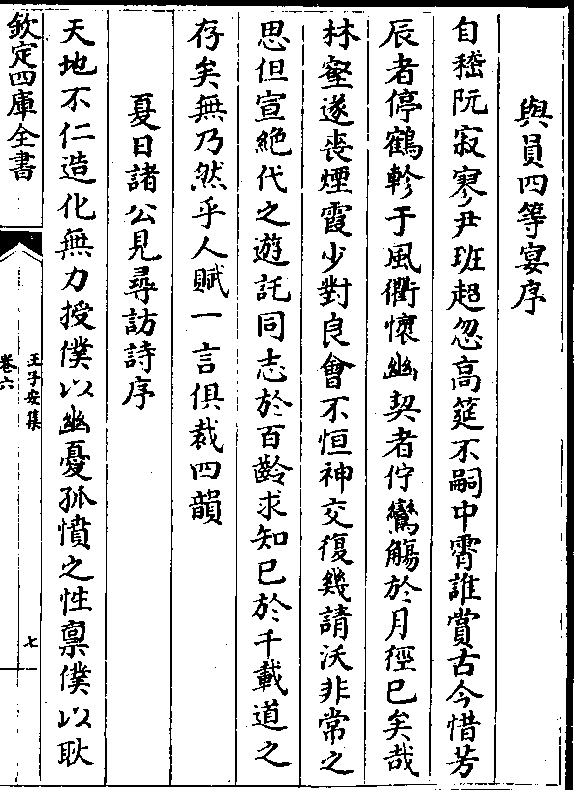 與員四等宴序
自嵇阮寂寥尹班超忽高筵不嗣中霄誰賞古今惜芳
辰者停鶴軫于風衢懷幽契者佇鸞觴於月徑已矣哉
林壑遂喪煙霞少對良會不恒神交復幾請沃非常之
思但宣絶代之遊託同志於百齡求知已於千載道之
存矣無乃然乎人賦一言俱裁四韻
夏日諸公見尋訪詩序
天地不仁造化無力授僕以幽憂孤憤之性禀僕以耿
欽定四庫全書
王子安集
卷六
七